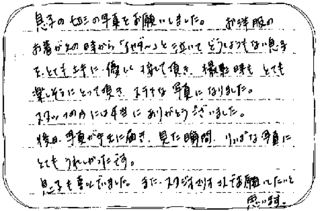 息子の七五三の写真をお願いしました。 お洋服の
お着がえの時から「いやだ〜」と泣いてどうしようもない息子
を、とても上手に優しく接して頂き、撮影時も とても
楽しそうにとって頂き、ステキな写真になりました。
スタッフの方には本当にありがとうございました。
後日、写真が手元に届き、見た瞬間、りっぱな写真に
とても うれしかったです。
息子も喜んでいました。また、スタジオ
思います。